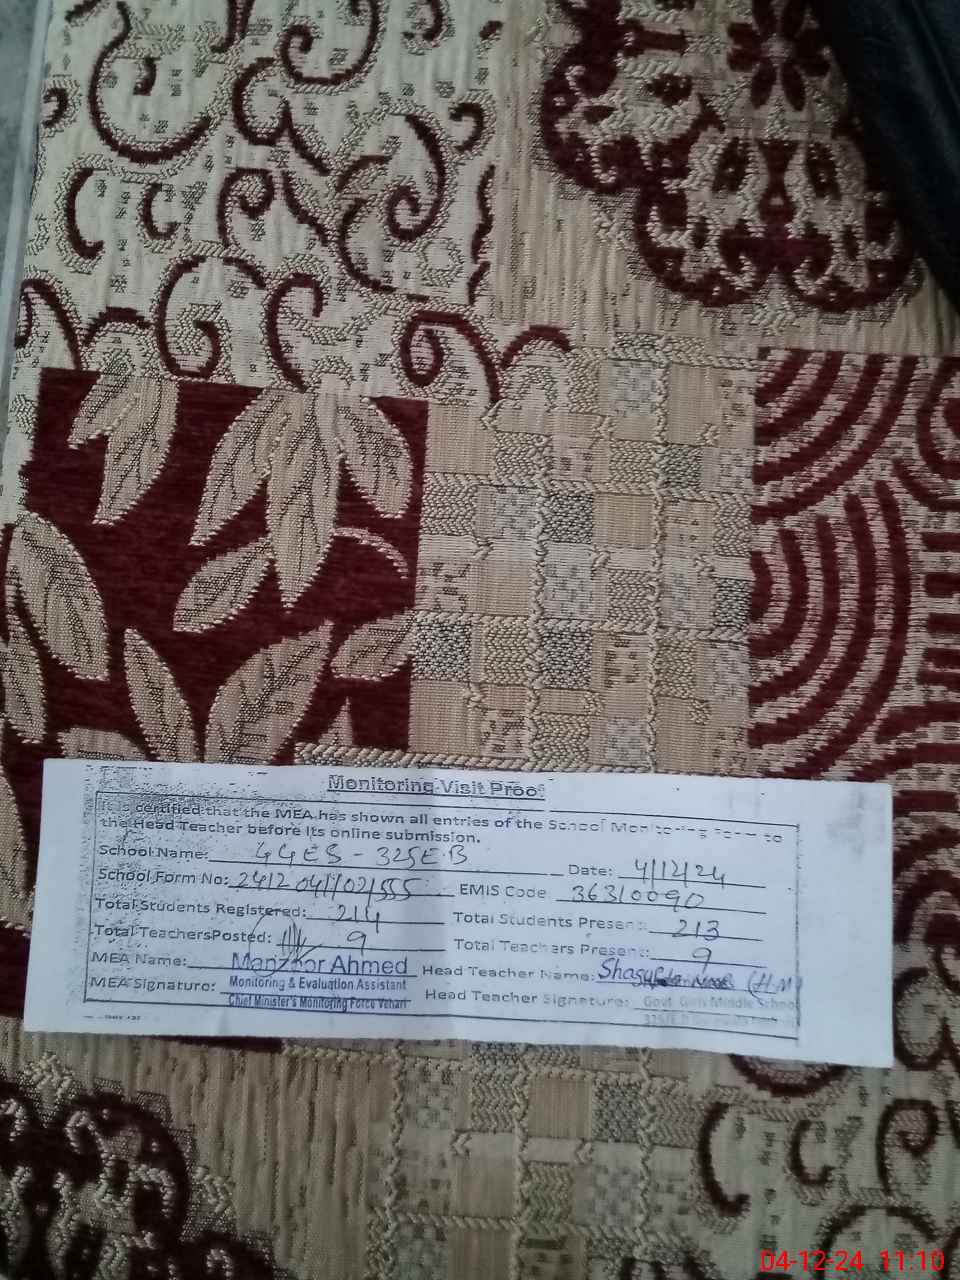 Monitoring Visit Proof
It is certified that the MEA has shown all entries of the School Monitoring Form to
the Head Teacher before its online submission.
School Name: GGES - 325E.B Date: 4/12/24
School Form No: EMIS Code 36310090
Total Students Registered: 214 Total Students Present: 213
Total TeachersPosted: 9 Total Teachers Present: 9
MEA Name: Manzoor Ahmed Head Teacher Name: Shagufta (H.M)
MEA Signature: Monitoring & Evaluation Assistant Head Teacher Signature: Govt. Girls Middle School
Chief Minister's Monitoring Force Vehari
04-12-24 11:10